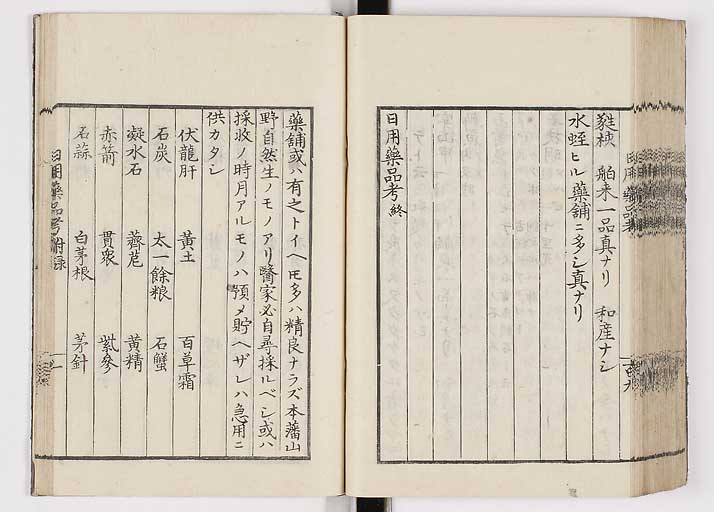 蛻蛺 舶来一品真ナリ 和産ナシ
水蛭ヒル藥舖ニ多シ真ナリ
日用藥品考終
藥舖或ハ有之トイヘ𪜈多ハ精良ナラズ本藩山
野自然生ノモノアリ醫家必自尋採ルベシ或ハ
採收ノ時月アルモノハ預メ貯ヘザレハ急用ニ
供カタシ
伏龍肝 黃土 百草霜
石炭 太一餘粮 石蟹
凝水石 薺苨 黄精
赤箭 貫衆 紫參
石蒜 白茅根 茅針
日用藥品考附録 一